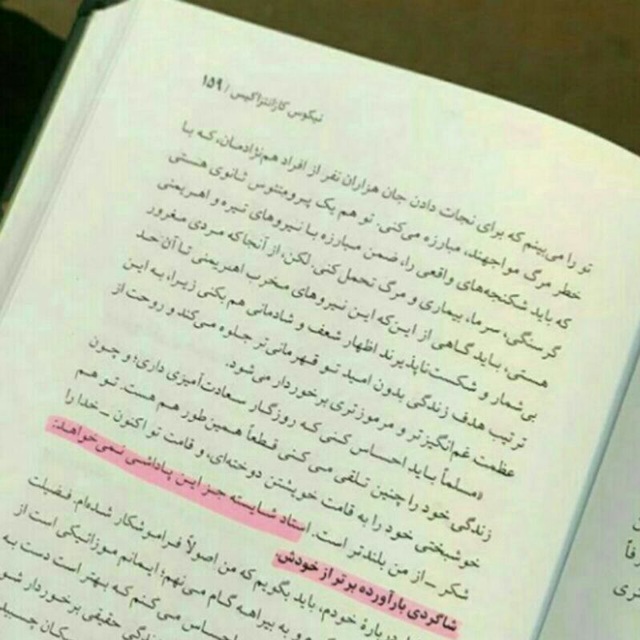 نیکوس کازانتزاکیس / ۱۵۹
تو را می‌بینم که برای نجات دادن جان هزاران نفر از افراد هم‌نژادمان، که با
خطر مرگ مواجهند، مبارزه می‌کنی. تو هم یک پرومتئوس ثانوی هستی
که باید شکنجه‌های واقعی را، ضمن مبارزه با نیروهای تیره و اهریمنی
گرسنگی، سرما، بیماری و مرگ تحمل کنی. لکن، از آنجا که مردی مغرور
هستی، باید گاهی از این‌که این نیروهای مخرب اهریمنی تا آن حد
بی‌شمار و شکست‌ناپذیرند اظهار شعف و شادمانی هم بکنی زیرا، به این
ترتیب هدف زندگی بدون امید تو قهرمانی‌تر جلوه می‌کند و روحت از
عظمت غم‌انگیزتر و مرموزتری برخوردار می‌شود.
«مسلماً باید احساس کنی که روزگار سعادت‌آمیزی داری؛ و چون
زندگی خود را چنین تلقی می‌کنی قطعاً همین‌طور هم هست. تو هم
خوشبختی خود را به قامت خویشتن دوخته‌ای، و قامت تو اکنون ــ خدا را
شکر ــ از من بلندتر است. استاد شایسته جز این پاداشی نمی‌خواهد:
شاگردی بارآورده برتر از خودش
درباره خودم، باید بگویم که من اصولاً فراموشکار شده‌ام
و به بیراهه گام می‌نهم؛ ایمانم موزائیکی است از
احساس می‌کنم که بهتر است دست به
زندگی حقیقی برخوردار